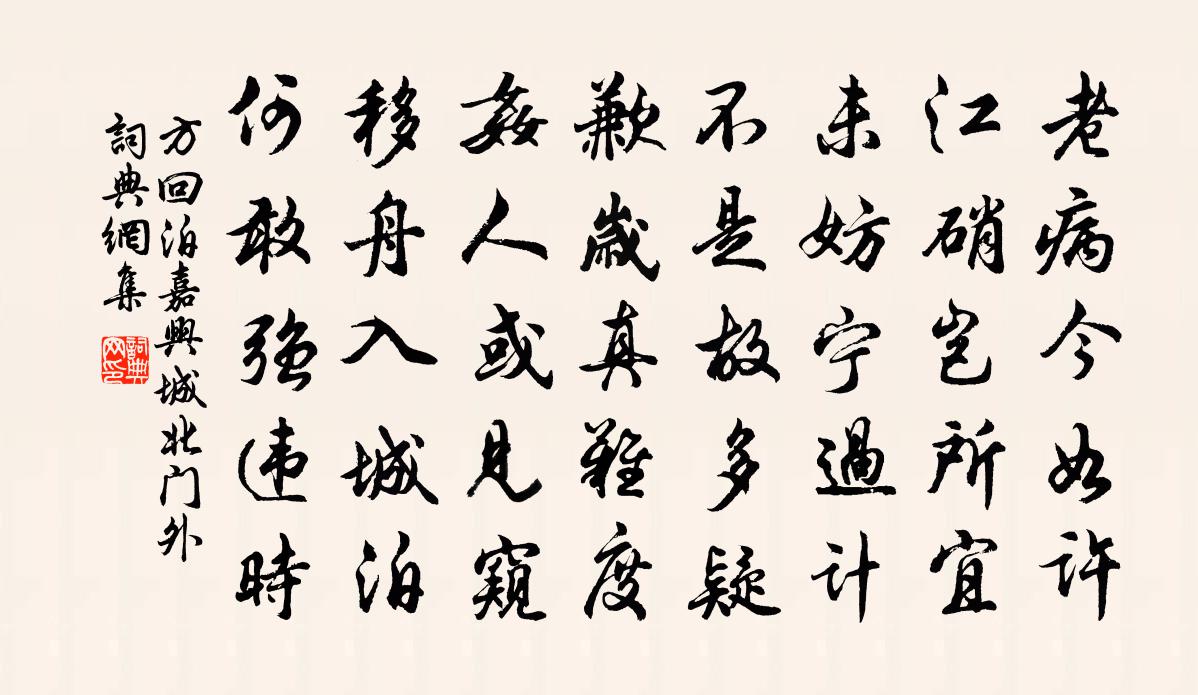 老病今如许
江硝岂所宜
未妨宁過计
不是故多疑
歉歲真難度
姦人或見窺
移舟入城泊
何敢強违時
方回泊嘉興城北门外
詞典網集
詞典网印